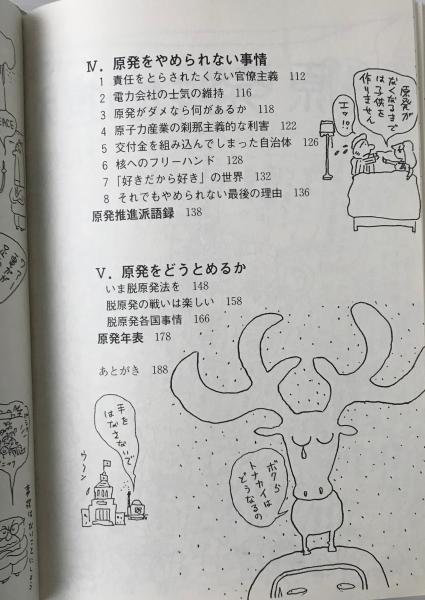 Ⅳ. 原発をやめられない事情
1 責任をとらされたくない官僚主義 112
2 電力会社の士気の維持 116
3 原発がダメなら何があるか 118
4 原子力産業の刹那主義的な利害 122
5 交付金を組み込んでしまった自治体 126
6 核へのフリーハンド 128
7 「好きだから好き」の世界 132
8 それでもやめられない最後の理由 136
原発推進派語録 138
原発が
なくなるまで
は子供を
作りません
エッ!!
Ⅴ. 原発をどうとめるか
いま脱原発法を 148
脱原発の戦いは楽しい 158
脱原発各国事情 166
原発年表 178
あとがき 188
手を
はなさないで
ウーン
ボクら
トナカイは
どうなるの